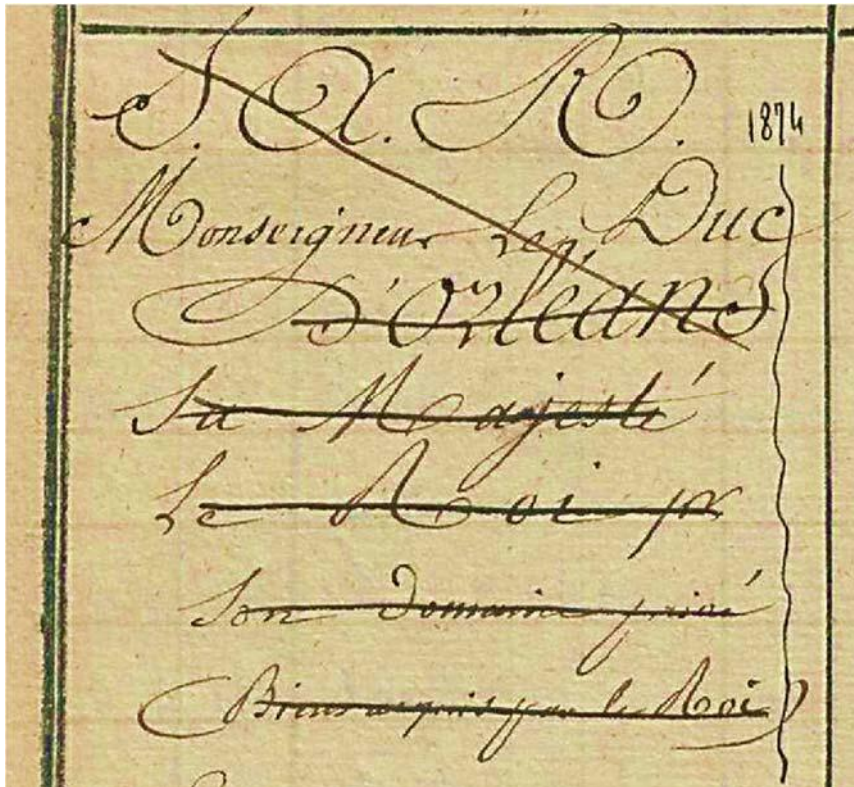 S. A. R.
1874
Monseigneur Le Duc
D'Orléans
Sa Majesté
Le Roi pr
Son Domaine privé
(Biens acquis par le Roi)